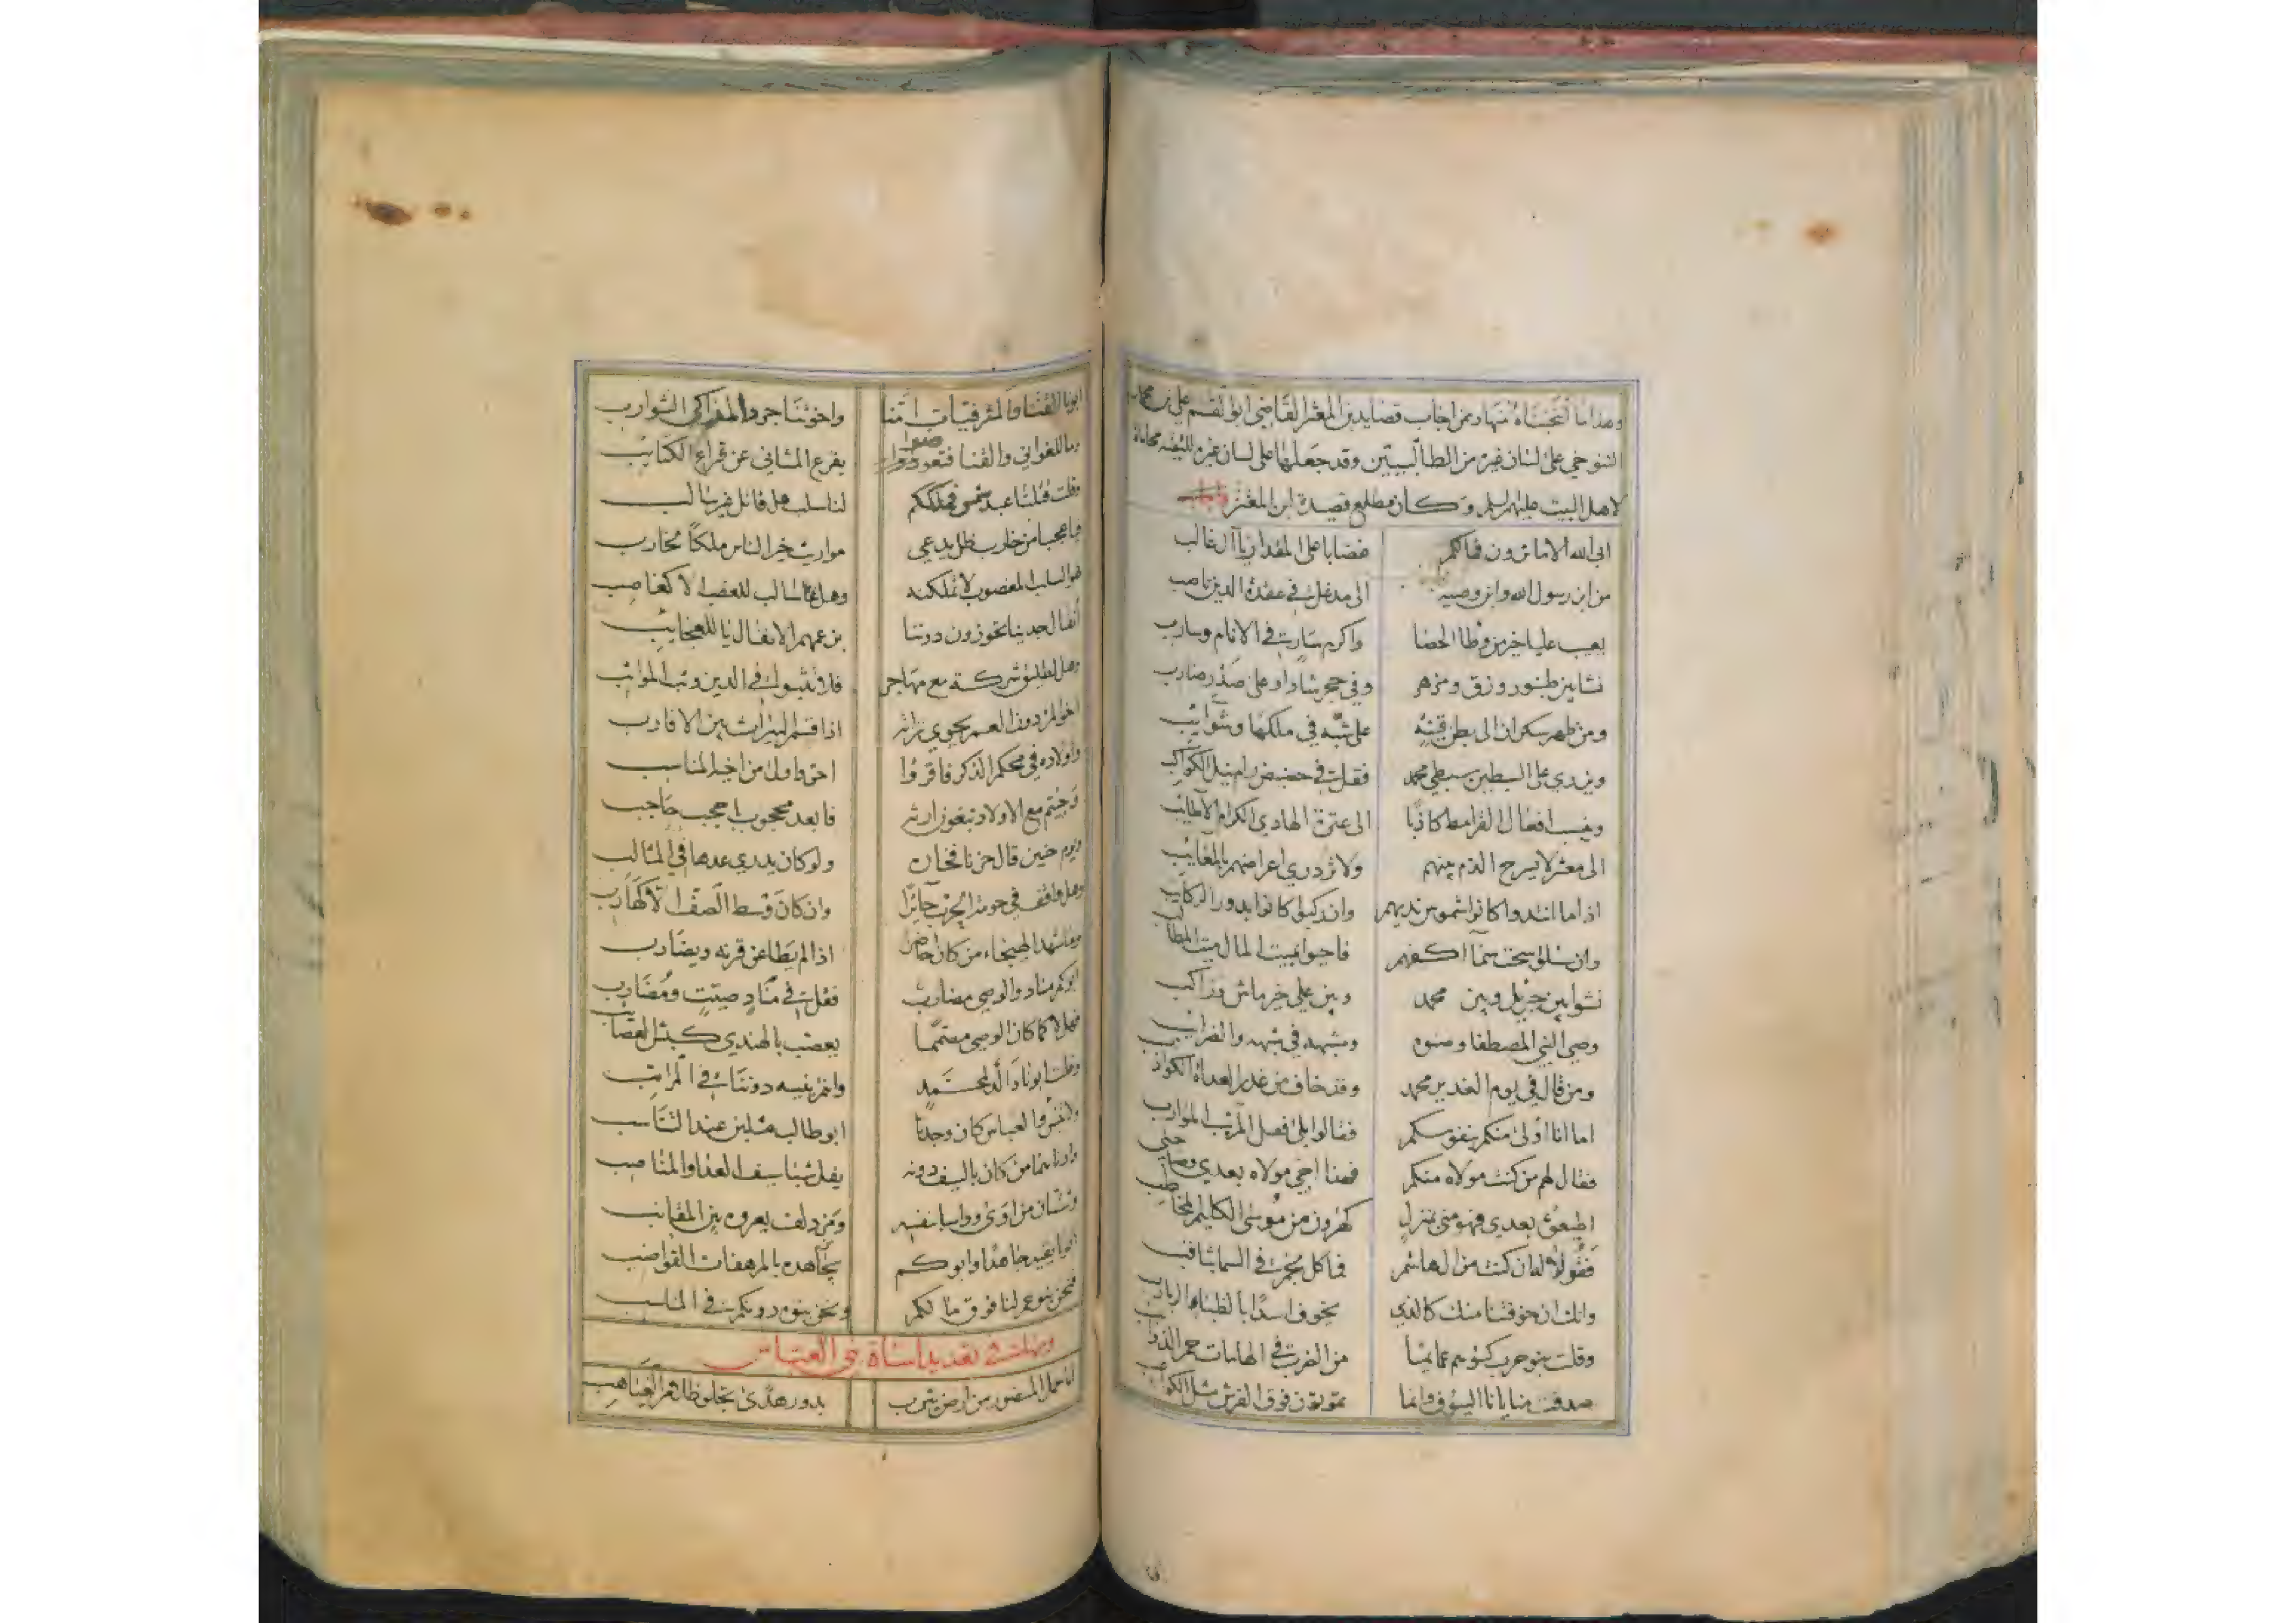 وهذا ما انتخبناه منها وممن اجاب قصايد بن المعتز القاضي ابو القسم علي بن محمد
التنوخي على لسان غيره من الطالبيين وقد جعلها على لسان غيره للتقية محاماة
لاهل البيت عليهم السلم وكان مطلع قصيدة ابن المعتز
ابى الله الا ما ترون فمالكم غضابا على الاقدار يا آل طالب
من ابن رسول الله وابن وصيه الى مدغل في عقدة الدين ناصب
يعيب عليا خير من وطا الحصا واكرم سار في الانام وسارب
نشا بين طنبور وزق ومزهر وفي حجر شاد او على صدر ضارب
ومن ظهر سكران الى بطن قينة على شبه في ملكها وشوائب
ويزري على السبطين سبطي محمد فقل في حضيض رام نيل الكواكب
وينسب افعال القرامط كاذبا الى عترة الهادي الكرام الاطايب
الى معشر لا يبرح الذم بينهم ولا تزدري اعراضهم بالمعايب
اذا ما انتدوا كانوا شموس نديهم وان ركبوا كانوا بدور الركايب
وان سئلوا سحت سماء اكفهم فاحيوا بميت المال ميت المطالب
نشوا بين جبريل وبين محمد وبين علي خير ماش وراكب
وصي النبي المصطفا وصنوه ومشبهه في شيمه والضرائب
ومن قال في يوم الغدير محمد وقد خاف من غدر العداة الكواذب
اما انا اولى منكم بنفوسكم فقالوا بلى فصل المريب الموارب
فقال لهم من كنت مولاه منكم فهذا اخي مولاه بعدي وصاحبي
اطيعوه بعدي فهو مني بمنزل كهرون من موسى الكليم المخاطب
فقولا له ان كنت من ال هاشم فما كل نجم في السما بثاقب
وانك ان خوفتنا منك كالذي يخوف اسدا بالظباء الربارب
وقلت بنو حرب كسوكم عمايما من الضرب في الهامات حمر الذوائب
صدقت منايانا السيوف وانما تموتون فوق الفرش مثل الكواعب
ابونا القنا والمشرفيات امنا واخوتنا جرد المذاكي الشوازب
وما للغواني والقنا فتعوضوا بقرع المثاني عن قراع الكتائب
وقلت قتلنا عبد شمس فملكهم لنا سلب هل قاتل غير سالب
فيا عجبا من خارب ظل يدعي مواريث خير الناس ملكا مخارب
هو السلب المغصوب لا تملكنه وهل سالب للغصب الا كغاصب
انفال جدنا تحوزون دوننا بزعمهم الانفال يا للعجائب
وهل لطليق شركة مع مهاجر فلا تثبوا في الدين وثب المواثب
اخو المرء دون العم يحوي تراثه اذا قسم الميراث بين الاقارب
واولاده في محكم الذكر فاقروا احق واولى من اخيه المناسب
وجئتم مع الاولاد تبغون ارثه فابعد محجوب باحجب حاجب
ويوم حنين قال حزنا فخاره ولو كان يدري عدها في المثالب
وهل واقف في حومة الحرب حائرا وان كان وسط الصف الا كهارب
وما شهد الهيجاء من كان حاضرا اذا لم يطاعن قرنه ويضارب
ابوكم مناد والوصي مضارب فقل في مناد صيت ومضارب
فهلا كما كان الوصي مصمما يعصب بالهندي كبش العصائب
وقلت ابونا والد لمحمد وانتم بنيه دوننا في المراتب
ولا تنس فالعباس كان وجدنا ابو طالب مثلين عند التناسب
وادناهما من كان بالسيف دونه يفل شبا سيف العدا والمناصب
وشتان من اوى وواسا بنفسه ومن دلفت يعروه بين المقانب
ابونا يقيه جاهدا وابوكم يجاهده بالمرهفات القواضب
فنحن بنو عم لنا فوق ما لكم ونحن بنوه دونكم في المناسب
ومنها في تعديد اساة بني العباس
اما حمل المنصور من ارض يثرب بدور هدى تجلو ظلام الغياهب